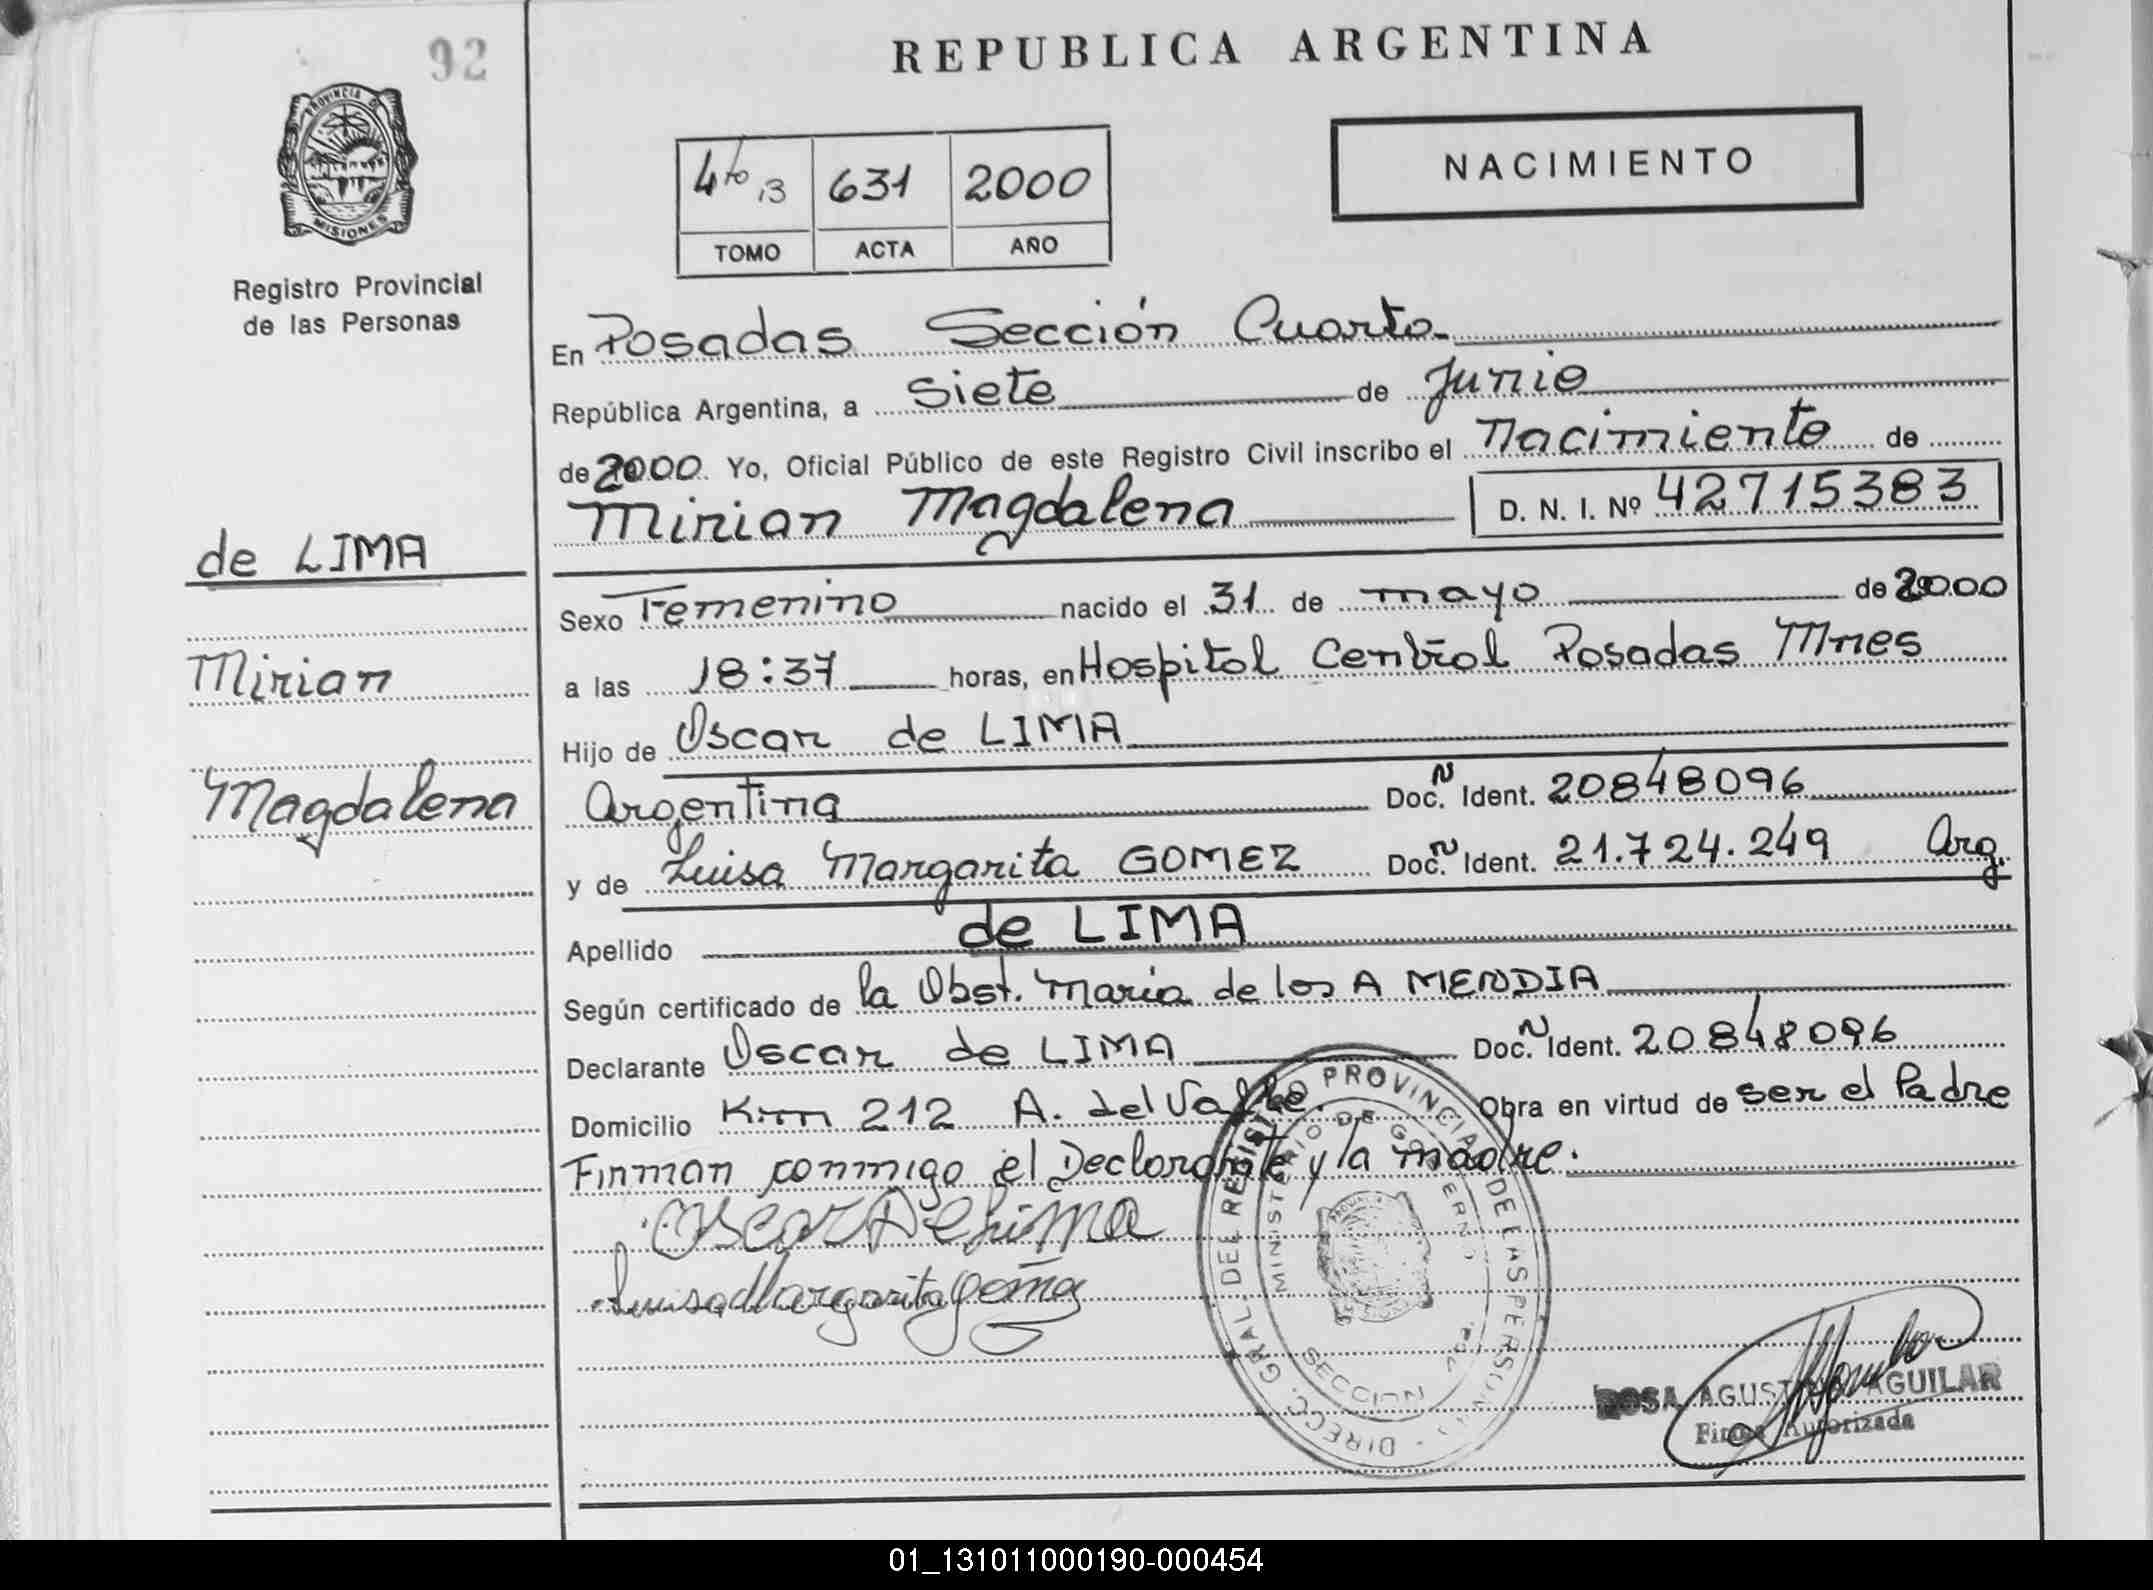 92
REPUBLICA ARGENTINA
PROVINCIA DE
MISIONES
Registro Provincial
de las Personas
4to 13 631 2000
TOMO ACTA AÑO
NACIMIENTO
En Posadas Sección Cuarta
República Argentina, a siete de Junio
de 2000 Yo, Oficial Público de este Registro Civil inscribo el Nacimiento de
Mirian Magdalena D. N. I. Nº 42715383
de LIMA
Mirian
Magdalena
Sexo Femenino nacido el 31 de mayo de 2000
a las 18:37 horas, en Hospital Central Posadas Mnes
Hijo de Oscar de LIMA
Argentina Doc. N Ident. 20848096
y de Luisa Margarita GOMEZ Doc. N Ident. 21.724.249 Arg.
Apellido de LIMA
Según certificado de la Obst. Maria de los A MENDIA
Declarante Oscar de LIMA Doc. N Ident. 20848096
Domicilio Km 212 A. del Valle. Obra en virtud de ser el Padre
Firman conmigo el Declarante y la madre.
Oscar De Lima
Luisa Margarita Gomez
DIRECC. GRAL. DEL REGISTRO PROVINCIAL DE LAS PERSONAS
MINISTERIO DE GOBIERNO
SECCION
ROSA AGUSTINA AGUILAR
Firma Autorizada
01_131011000190-000454